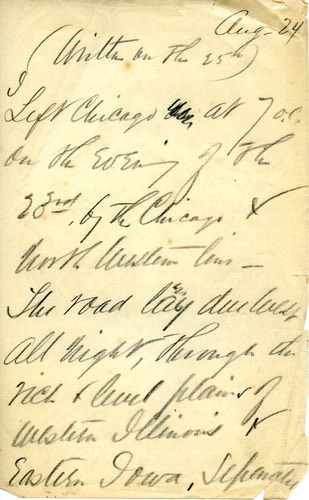 Aug. 24
(Written on the 25th)
I
Left Chicago at 7 oc.
on the Evening of the
23rd, by the Chicago &
North Western line –
The road lay due West
all night, through the
rich & level plains of
Western Illinois &
Eastern Iowa, Separated